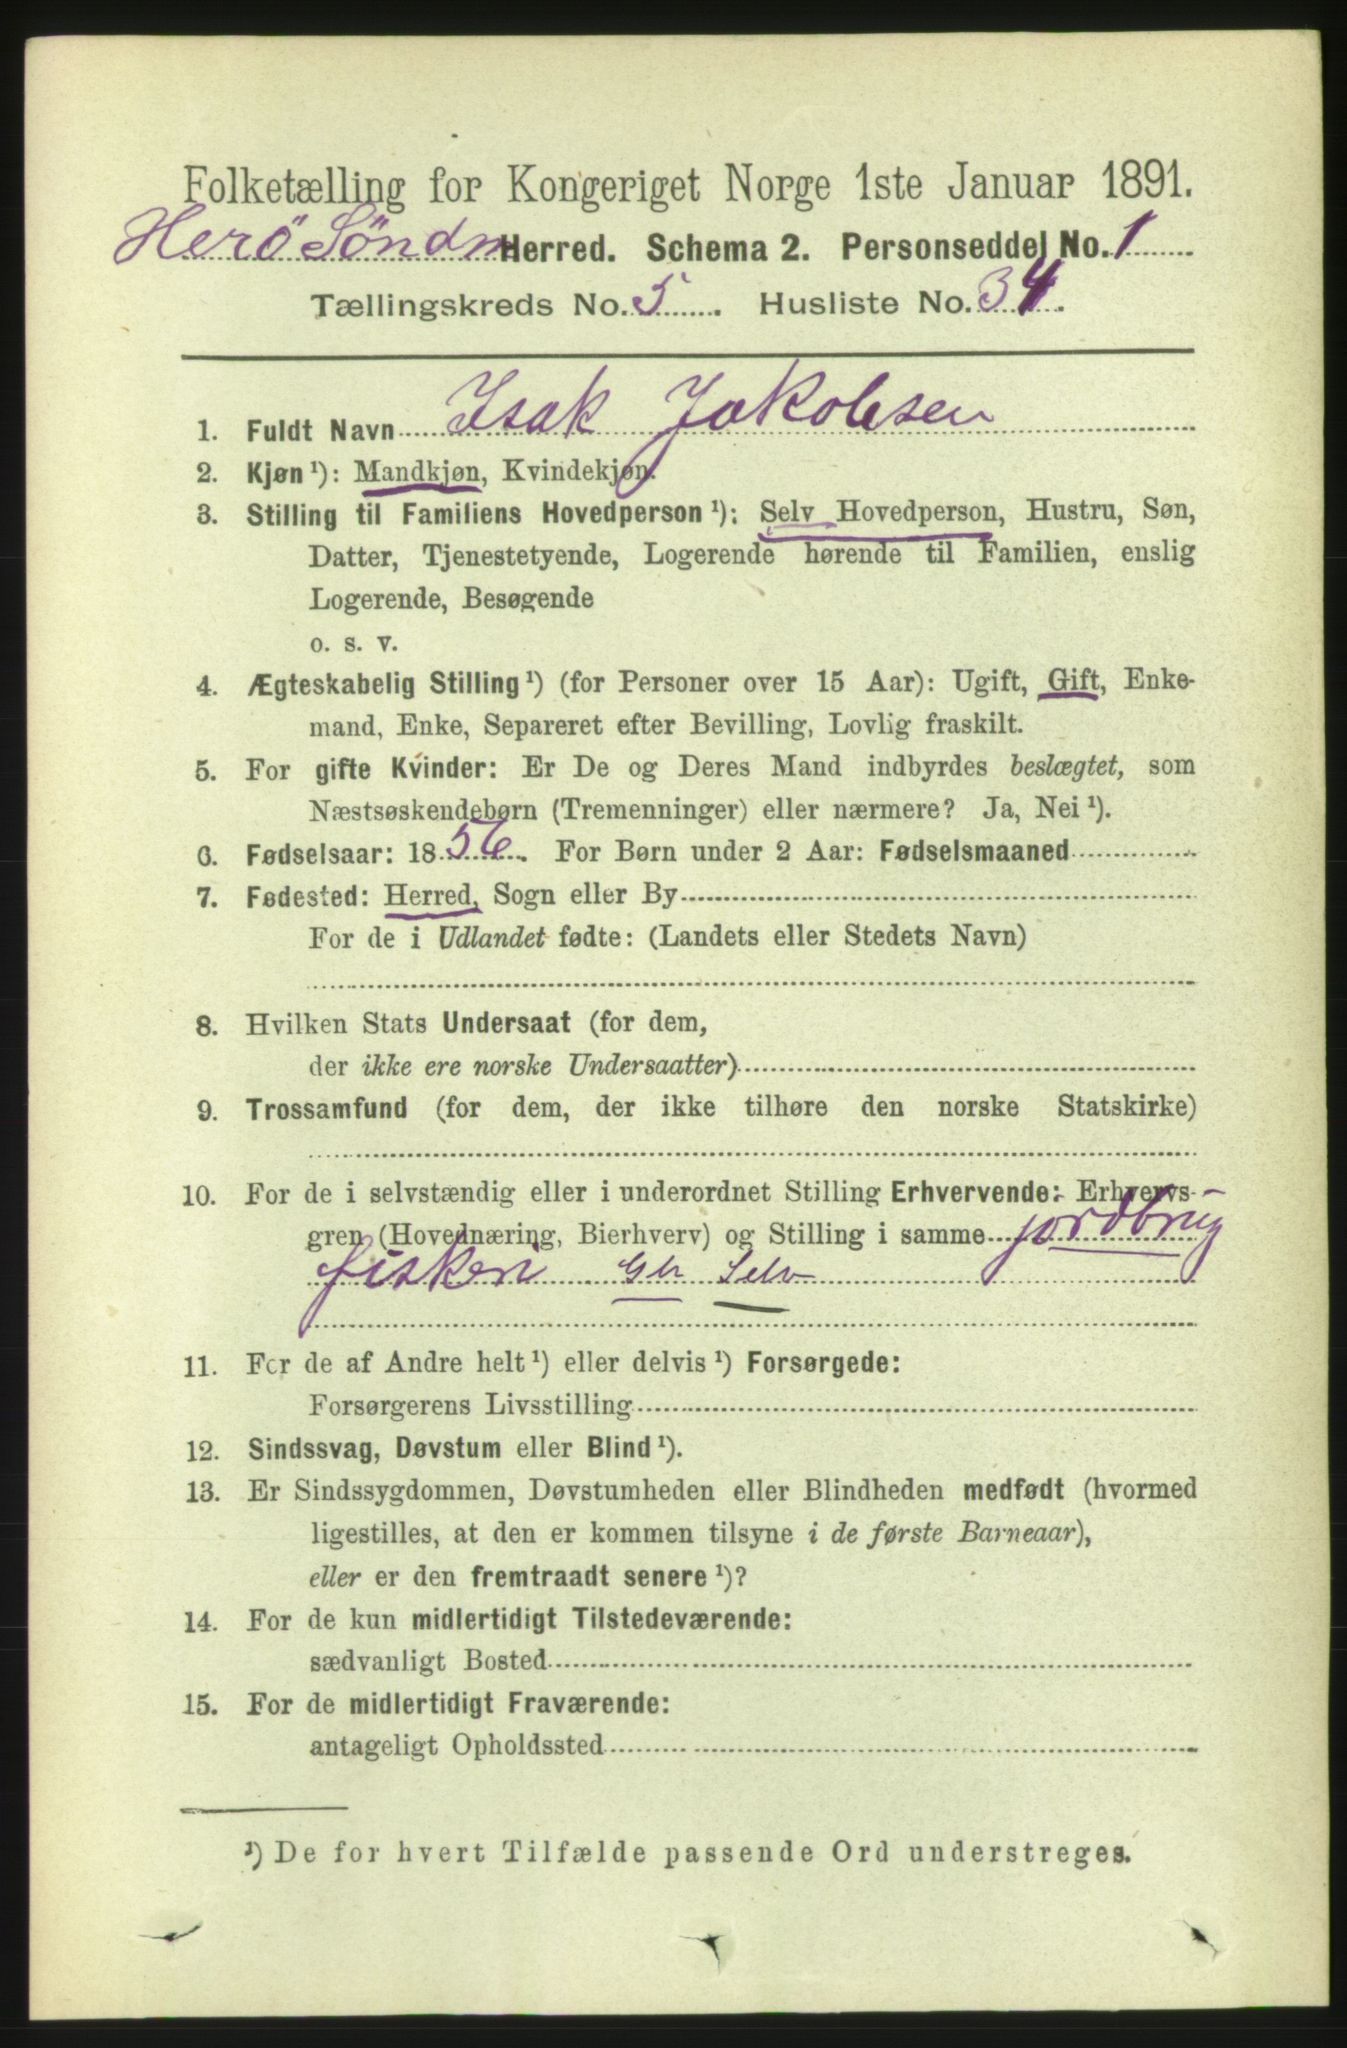 Folketælling for Kongeriget Norge 1ste Januar 1891.
Herö Söndm Herred. Schema 2. Personseddel No. 1
Tællingskreds No. 5. Husliste No. 34.
1. Fuldt Navn Isak Jakobsen
2. Kjøn ¹): Mandkjøn, Kvindekjøn.
3. Stilling til Familiens Hovedperson ¹): Selv Hovedperson, Hustru, Søn,
Datter, Tjenestetyende, Logerende hørende til Familien, enslig
Logerende, Besøgende
o. s. v.
4. Ægteskabelig Stilling ¹) (for Personer over 15 Aar): Ugift, Gift, Enke-
mand, Enke, Separeret efter Bevilling, Lovlig fraskilt.
5. For gifte Kvinder: Er De og Deres Mand indbyrdes beslægtet, som
Næstsøskendebørn (Tremenninger) eller nærmere? Ja, Nei ¹).
6. Fødselsaar: 1856. For Børn under 2 Aar: Fødselsmaaned
7. Fødested: Herred, Sogn eller By
For de i Udlandet fødte: (Landets eller Stedets Navn)
8. Hvilken Stats Undersaat (for dem,
der ikke ere norske Undersaatter)
9. Trossamfund (for dem, der ikke tilhøre den norske Statskirke)
10. For de i selvstændig eller i underordnet Stilling Erhvervende: Erhvervs-
gren (Hovednæring, Bierhverv) og Stilling i samme jordbrug
fiskeri Selv
11. For de af Andre helt ¹) eller delvis ¹) Forsørgede:
Forsørgerens Livsstilling
12. Sindssvag, Døvstum eller Blind ¹).
13. Er Sindssygdommen, Døvstumheden eller Blindheden medfødt (hvormed
ligestilles, at den er kommen tilsyne i de første Barneaar),
eller er den fremtraadt senere ¹)?
14. For de kun midlertidigt Tilstedeværende:
sædvanligt Bosted
15. For de midlertidigt Fraværende:
antageligt Opholdssted
¹) De for hvert Tilfælde passende Ord understreges.